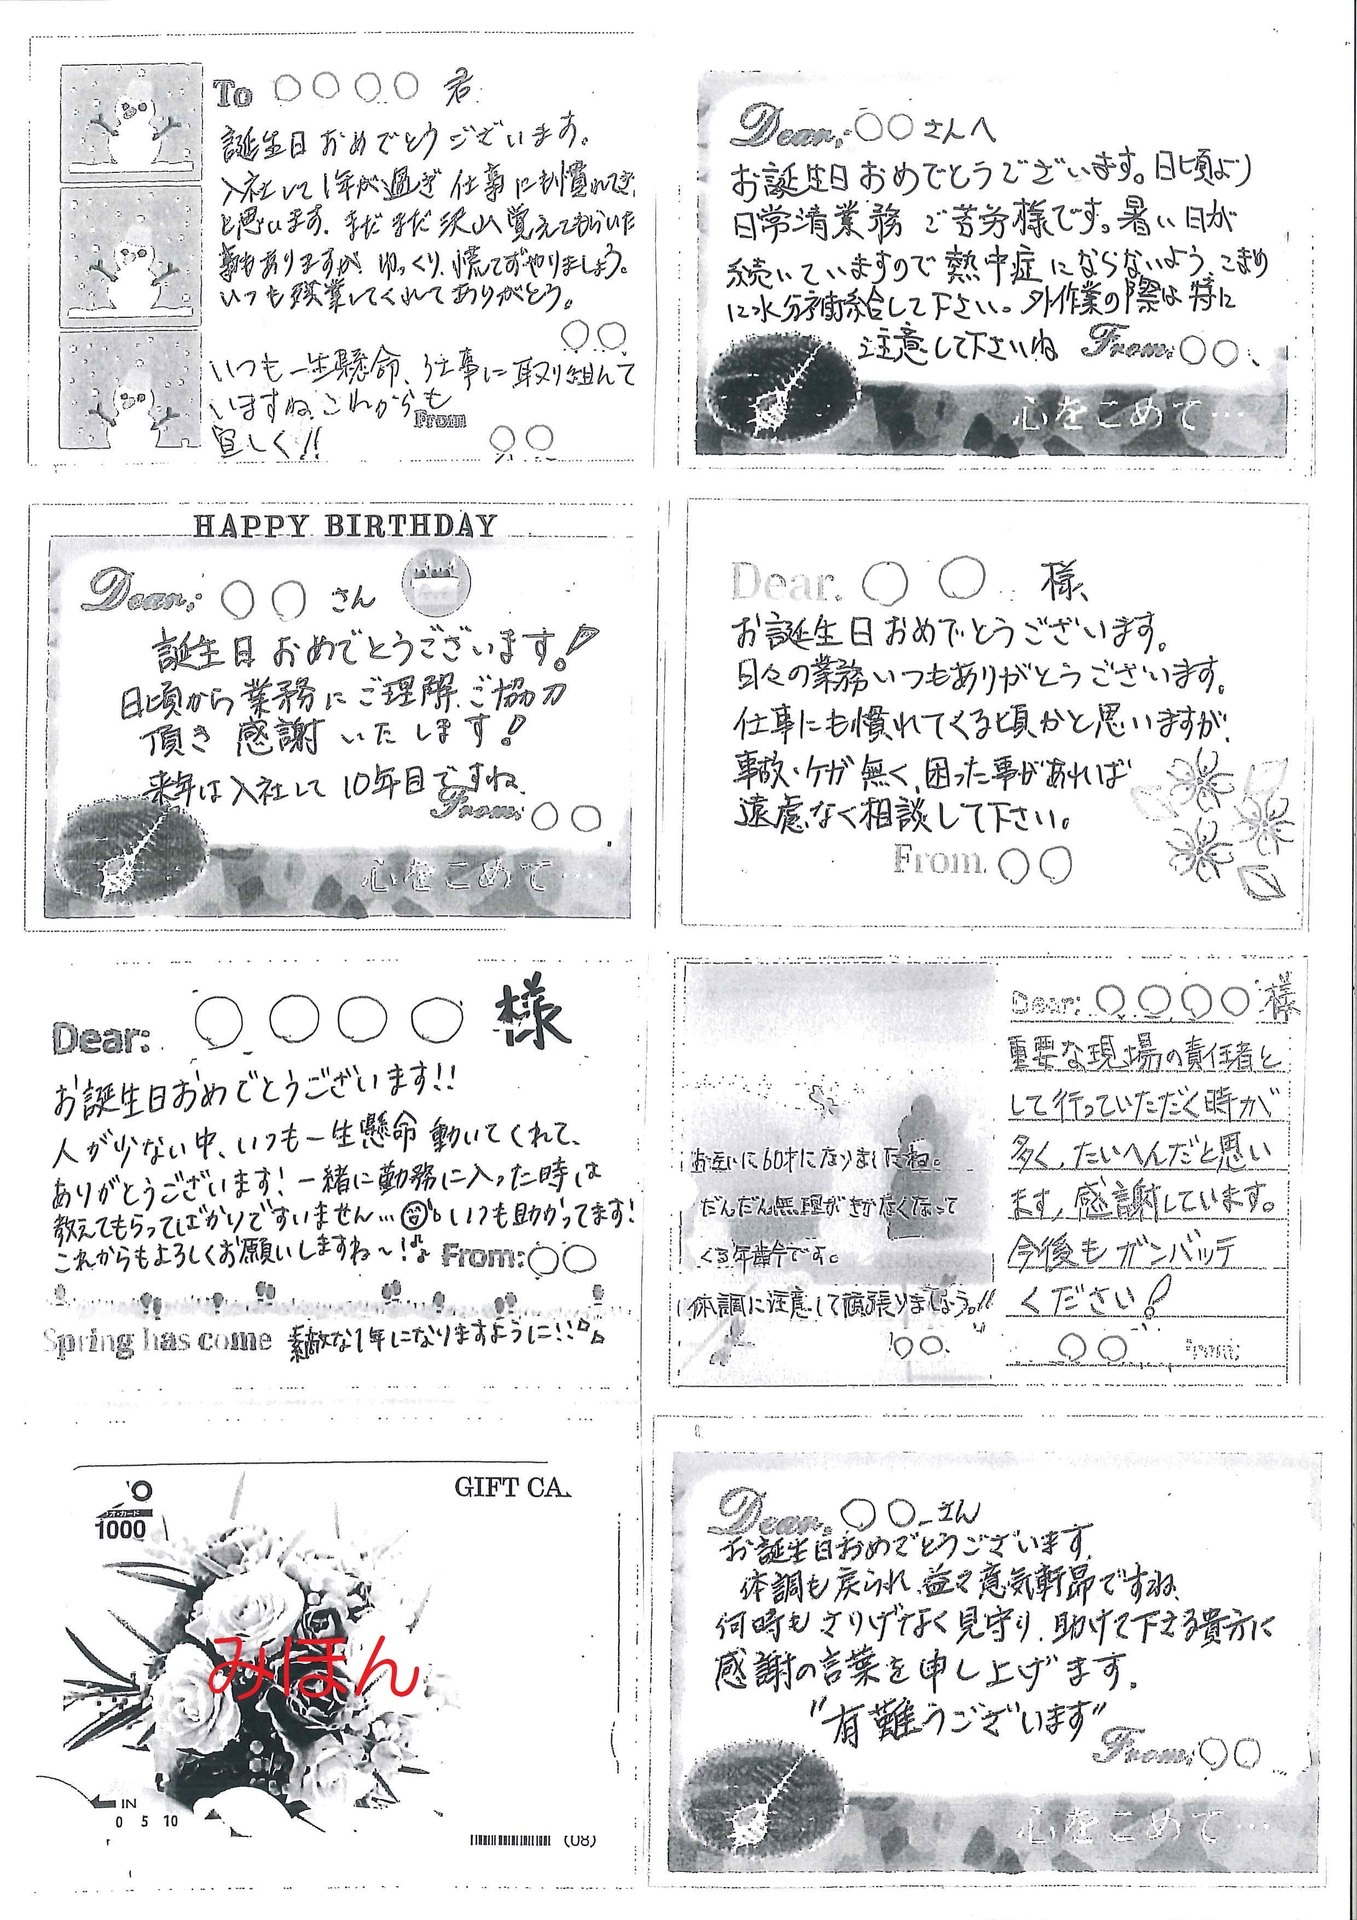 To ○○○○ 君
誕生日おめでとうございます。
入社して1年が過ぎ 仕事にも慣れてき
と思います。まだまだ沢山覚えてもらいた
事もありますが ゆっくり、慌てずやりましょう。
いつも残業してくれてありがとう。
○○
いつも一生懸命、仕事に取り組んで
いますね。これからも
宜しく!!
From
○○
Dear. ○○さんへ
お誕生日おめでとうございます。日頃より
日常清業務 ご苦労様です。暑い日が
続いていますので熱中症にならないよう、こまめ
に水分補給して下さい。外作業の際は特に
注意して下さいね From: ○○、
心をこめて…
HAPPY BIRTHDAY
Dear. ○○ さん
誕生日おめでとうございます!
日頃から業務にご理解、ご協力
頂き 感謝いたします!
来年は入社して10年目ですね。
From: ○○
心をこめて…
Dear. ○○ 様、
お誕生日おめでとうございます。
日々の業務いつもありがとうございます。
仕事にも慣れてくる頃かと思いますが、
事故・ケガ無く、困った事があれば
遠慮なく相談して下さい。
From. ○○
Dear: ○○○○ 様
お誕生日おめでとうございます!!
人が少ない中、いつも一生懸命動いてくれて、
ありがとうございます!一緒に勤務に入った時は
教えてもらってばかりですいません…いつも助かってます!
これからもよろしくお願いしますね〜!♪ From: ○○
Spring has come 素敵な1年になりますように!!
Dear: ○○○○様
重要な現場の責任者と
して行っていただく時が
多く、たいへんだと思い
ます、感謝しています。
今後もガンバッテ
ください!
○○ From:
お互いに60才になりましたね。
だんだん無理がきかなくなって
くる年齢です。
体調に注意して頑張りましょう。!!
○○
GIFT CA
1000
みほん
IN
0 5 10
(08)
Dear. ○○さん
お誕生日おめでとうございます。
体調も戻られ、益々意気軒昂ですね。
何時もさりげなく見守り、助けて下さる貴方に
感謝の言葉を申し上げます。
"有難うございます"
From: ○○
心をこめて…